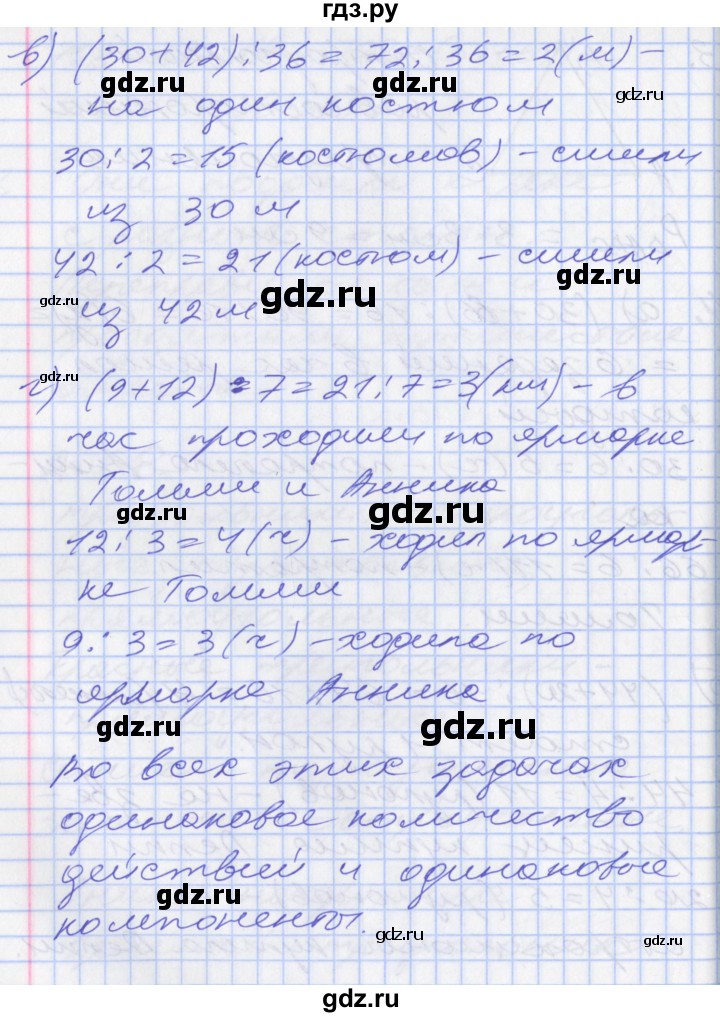 гдз.ру
в) (30+42):36= 72:36=2(м) –
gdz.ru gdz.ru gdz.ru
на один костюм
30:2=15 (костюмов) – сшили
gdz.ru gdz.ru
из 30 м
42:2=21(костюм) – сшили
gdz.ru
gdz.ru gdz.ru
из 42 м
gdz.ru
г) (9+12):7=21:7=3(км) – в
gdz.ru
час проходили по ярмарке
Томми и Анника
gdz.ru gdz.ru gdz.ru
12:3=4(ч) – ходил по ярмар-
ке Томми
9:3=3(ч) – ходила по
ярмарке Анника
gdz.ru gdz.ru
Во всех этих задачах
одинаковое количество
действий и одинаковые
gdz.ru gdz.ru
компоненты.
gdz.ru gdz.ru
gdz.ru